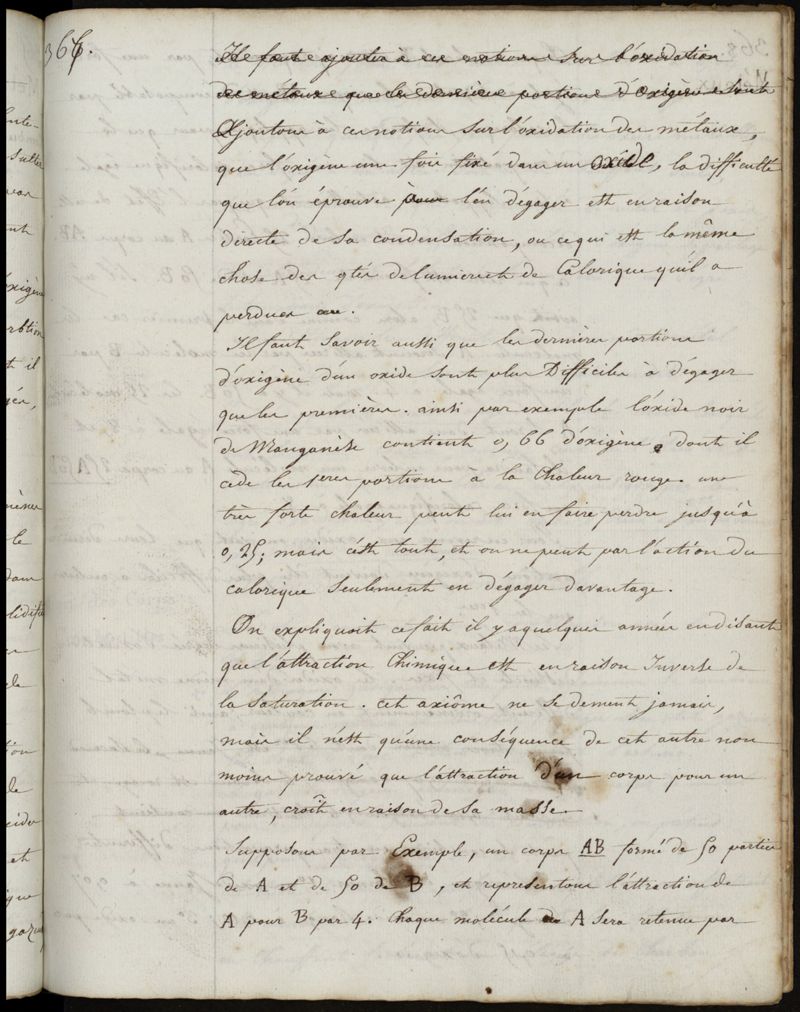 366.
Il faut ajouter à ces notions sur l'oxidation
des métaux que les dernières portions d'oxigène sont
Ajoutons à ces notions sur l'oxidation des métaux,
que l'oxigène une fois fixé dans un oxide, la difficulté
que l'on éprouve pour l'en dégager est en raison
directe de sa condensation, ou ce qui est la même
chose des qtés de lumière et de Calorique qu'il a
perdues.
Il faut savoir aussi que les dernières portions
d'oxigène d'un oxide sont plus Difficiles à dégager
que les premières. ainsi par exemple l'oxide noir
de Manganèse contient 0,66 d'oxigène, dont il
cède les 1eres portions à la Chaleur rouge. une
très forte chaleur peut lui en faire perdre jusqu'à
0,25; mais c'est tout, et on ne peut par l'action du
calorique seulement en dégager davantage.
On expliquoit ce fait il y a quelques années en disant
que l'attraction Chimique est en raison Inverse de
la saturation. cet axiôme ne se dement jamais,
mais il n'est qu'une conséquence de cet autre non
moins prouvé que l'attraction d'un corps pour un
autre, croît en raison de sa masse.
Supposons par Exemple, un corps AB formé de 50 parties
de A et de 50 de B, et représentons l'attraction de
A pour B par 4. Chaque molécule de A sera retenue par